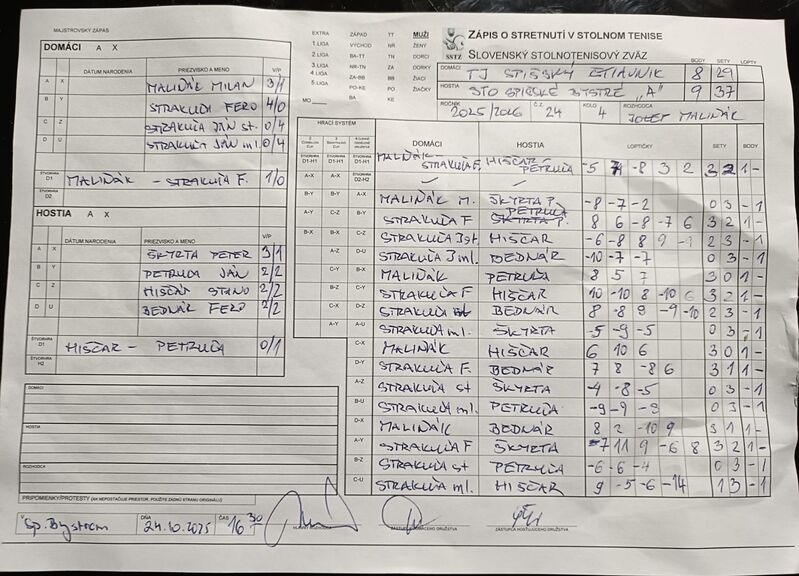 MAJSTROVSKÝ ZÁPAS
DOMÁCI A X
DÁTUM NARODENIA PRIEZVISKO A MENO V/P
A X MALIŇÁK MILAN 3/1
B Y STRAKUĽA FERO 4/0
C Z STRAKUĽA JÁN st. 0/4
D U STRAKUĽA JÁN ml. 0/4
ŠTVORHRA D1 MALIŇÁK - STRAKUĽA F. 1/0
D2
HOSTIA A X
DÁTUM NARODENIA PRIEZVISKO A MENO V/P
A X ŠKYRTA PETER 3/1
B Y PETRUĽA JÁN 2/2
C Z HISČAR STANO 2/2
D U BEDNÁR FERO 2/2
ŠTVORHRA D1 HISČAR - PETRUĽA 0/1
ŠTVORHRA H2
DOMÁCI
HOSTIA
ROZHODCA
PRIPOMIENKY/PROTESTY (AK NEPOSTAČUJE PRIESTOR, POUŽITE ZADNÚ STRANU ORIGINÁLU)
V Sp. Bystrom DŇA 24.10.2025 ČAS 16 30
EXTRA ZÁPAD TT MUŽI
1.LIGA VÝCHOD NR ŽENY
2.LIGA BA-TT TN DORCI
3.LIGA NR-TN ZA DORKY
4.LIGA ZA-BB BB ŽIACI
5.LIGA PO-KE PO ŽIAČKY
MO BA KE
SSTZ
ZÁPIS O STRETNUTÍ V STOLNOM TENISE
SLOVENSKÝ STOLNOTENISOVÝ ZVÄZ
BODY SETY LOPTY
DOMÁCI TJ SPIŠSKÝ ŠTIAVNIK 8 29
HOSTIA STO SPIŠSKÉ BYSTRÉ "A" 9 37
ROČNÍK 2025/2026 Č.Z. 24 KOLO 4 ROZHODCA JOZEF MALIŇÁK
HRACÍ SYSTÉM
DOMÁCI HOSTIA LOPTIČKY SETY BODY
MALIŇÁK - STRAKUĽA F. HISČAR - PETRUĽA -5 -8 3 2 3 2 1 -
MALIŇÁK M. ŠKYRTA P. -8 -7 -2 0 3 - 1
STRAKUĽA F PETRUĽA 8 6 -8 -7 6 3 2 1 -
STRAKUĽA J st. HISČAR -6 -8 8 9 2 3 - 1
STRAKUĽA J ml. BEDNÁR -10 -7 -7 0 3 - 1
MALIŇÁK PETRUĽA 8 5 7 3 0 1 -
STRAKUĽA F HISČAR 10 -10 8 -10 6 3 2 1 -
STRAKUĽA BEDNÁR 8 -8 9 -9 -10 2 3 - 1
STRAKUĽA ml. ŠKYRTA -5 -9 -5 0 3 - 1
MALIŇÁK HISČAR 6 10 6 3 0 1 -
STRAKUĽA F. BEDNÁR 7 8 -8 6 3 1 1 -
STRAKUĽA st ŠKYRTA -4 -8 -5 0 3 - 1
STRAKUĽA ml. PETRUĽA -9 -9 -9 0 3 - 1
MALIŇÁK BEDNÁR 8 2 -10 9 3 1 1 -
STRAKUĽA F ŠKYRTA -7 11 9 -6 8 3 2 1 -
STRAKUĽA st PETRUĽA -6 -6 -4 0 3 - 1
STRAKUĽA ml. HISČAR 9 -5 -6 -14 1 3 - 1
ZÁSTUPCA DOMÁCEHO DRUŽSTVA
ZÁSTUPCA HOSŤUJÚCEHO DRUŽSTVA